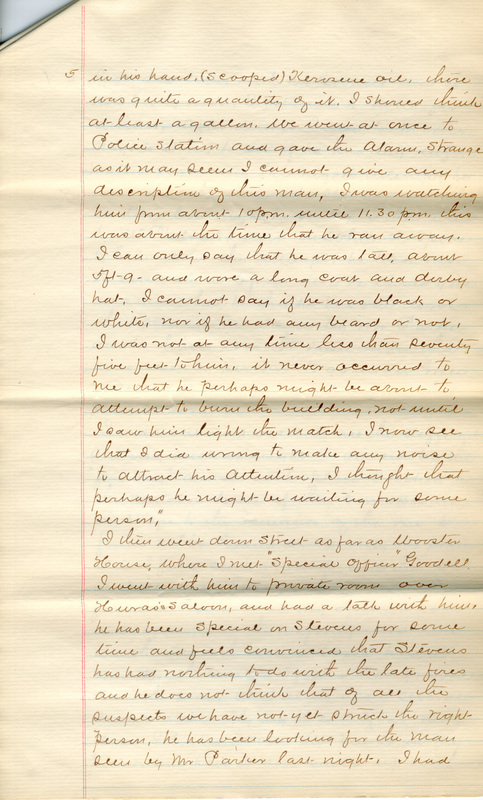 5 in his hand. (scooped) Kerosene oil. there
was quite a quantity of it. I should think
at least a gallon. We went at once to
Police Station and gave the Alarm, Strange
as it may seem I cannot give any
description of this man, I was watching
him from about 10 p.m. until 11.30 p.m. this
was about the time that he ran away.
I can only say that he was tall, about
5ft-9- and wore a long coat and derby
hat. I cannot say if he was black or
white, nor if he had any beard or not.
I was not at any time less than seventy
five feet to him. it never occurred to
me that he perhaps might be about to
attempt to burn the building, not until
I saw him light the match. I now see
that I did wrong to make any noise
to attract his attention, I thought that
perhaps he might be waiting for some
person."
I then went down Street as far as Wooster
House, where I met "Special Officer" Goodell.
I went with him to private room over
Saloon, and had a talk with him.
he has been Special on Stevens for some
time and feels convinced that Stevens
has had nothing to do with the late fires
and he does not think that of all the
suspects we have not yet struck the right
person, he has been looking for the man
seen by Mr Parker last night. I had